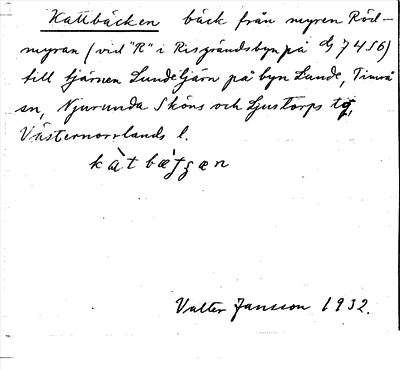 Kattbäcken bäck från myren Röd-
myran (vid "R" i Risgrändsbyn på dG 7456)
till tjärnen Lundetjärn på byn Lunde, Timrå
sn, Njurunda Sköns och Ljustorps tg,
Västernorrlands l.
Valter Jansson 1932.